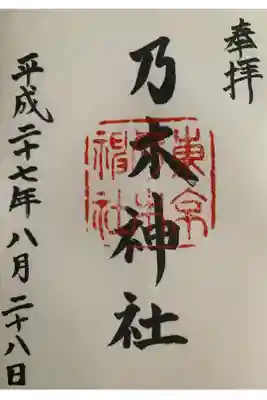 奉拝
乃木神社
平成二十七年八月二十八日
東京
乃木
神社